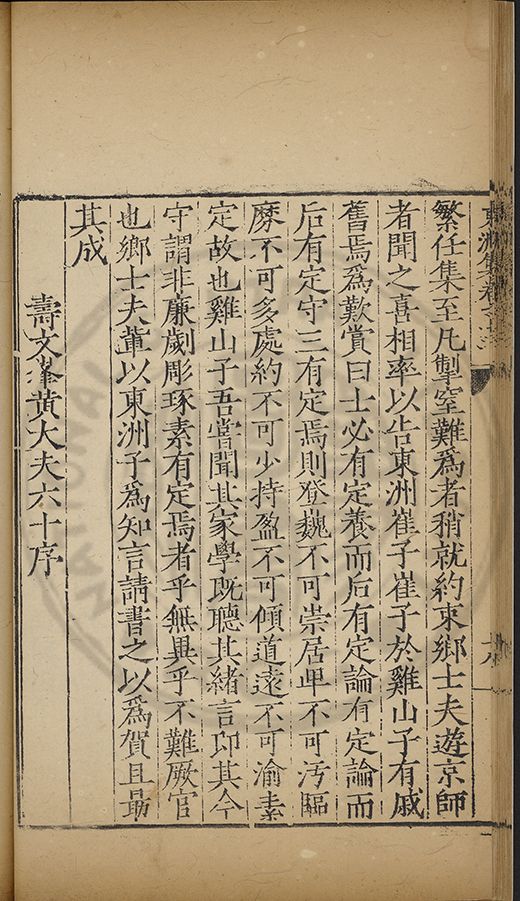 東洲集卷之十
繁任集至凡掣窒難爲者稍就約束鄉士夫遊京師
者聞之喜相率以告東洲崔子崔子於雞山子有戚
舊焉爲歎賞曰士必有定養而后有定論有定論而
后有定守三有定焉則登巍不可崇居卑不可汚驅
縻不可多處約不可少持盈不可傾道遠不可渝素
定故也雞山子吾嘗聞其家學既聽其緒言印其今
守謂非廉劌彫琢素有定焉者乎無異乎不難厥官
也鄉士夫輩以東洲子爲知言請書之以爲賀且勗
其成
壽文峯黃大夫六十序